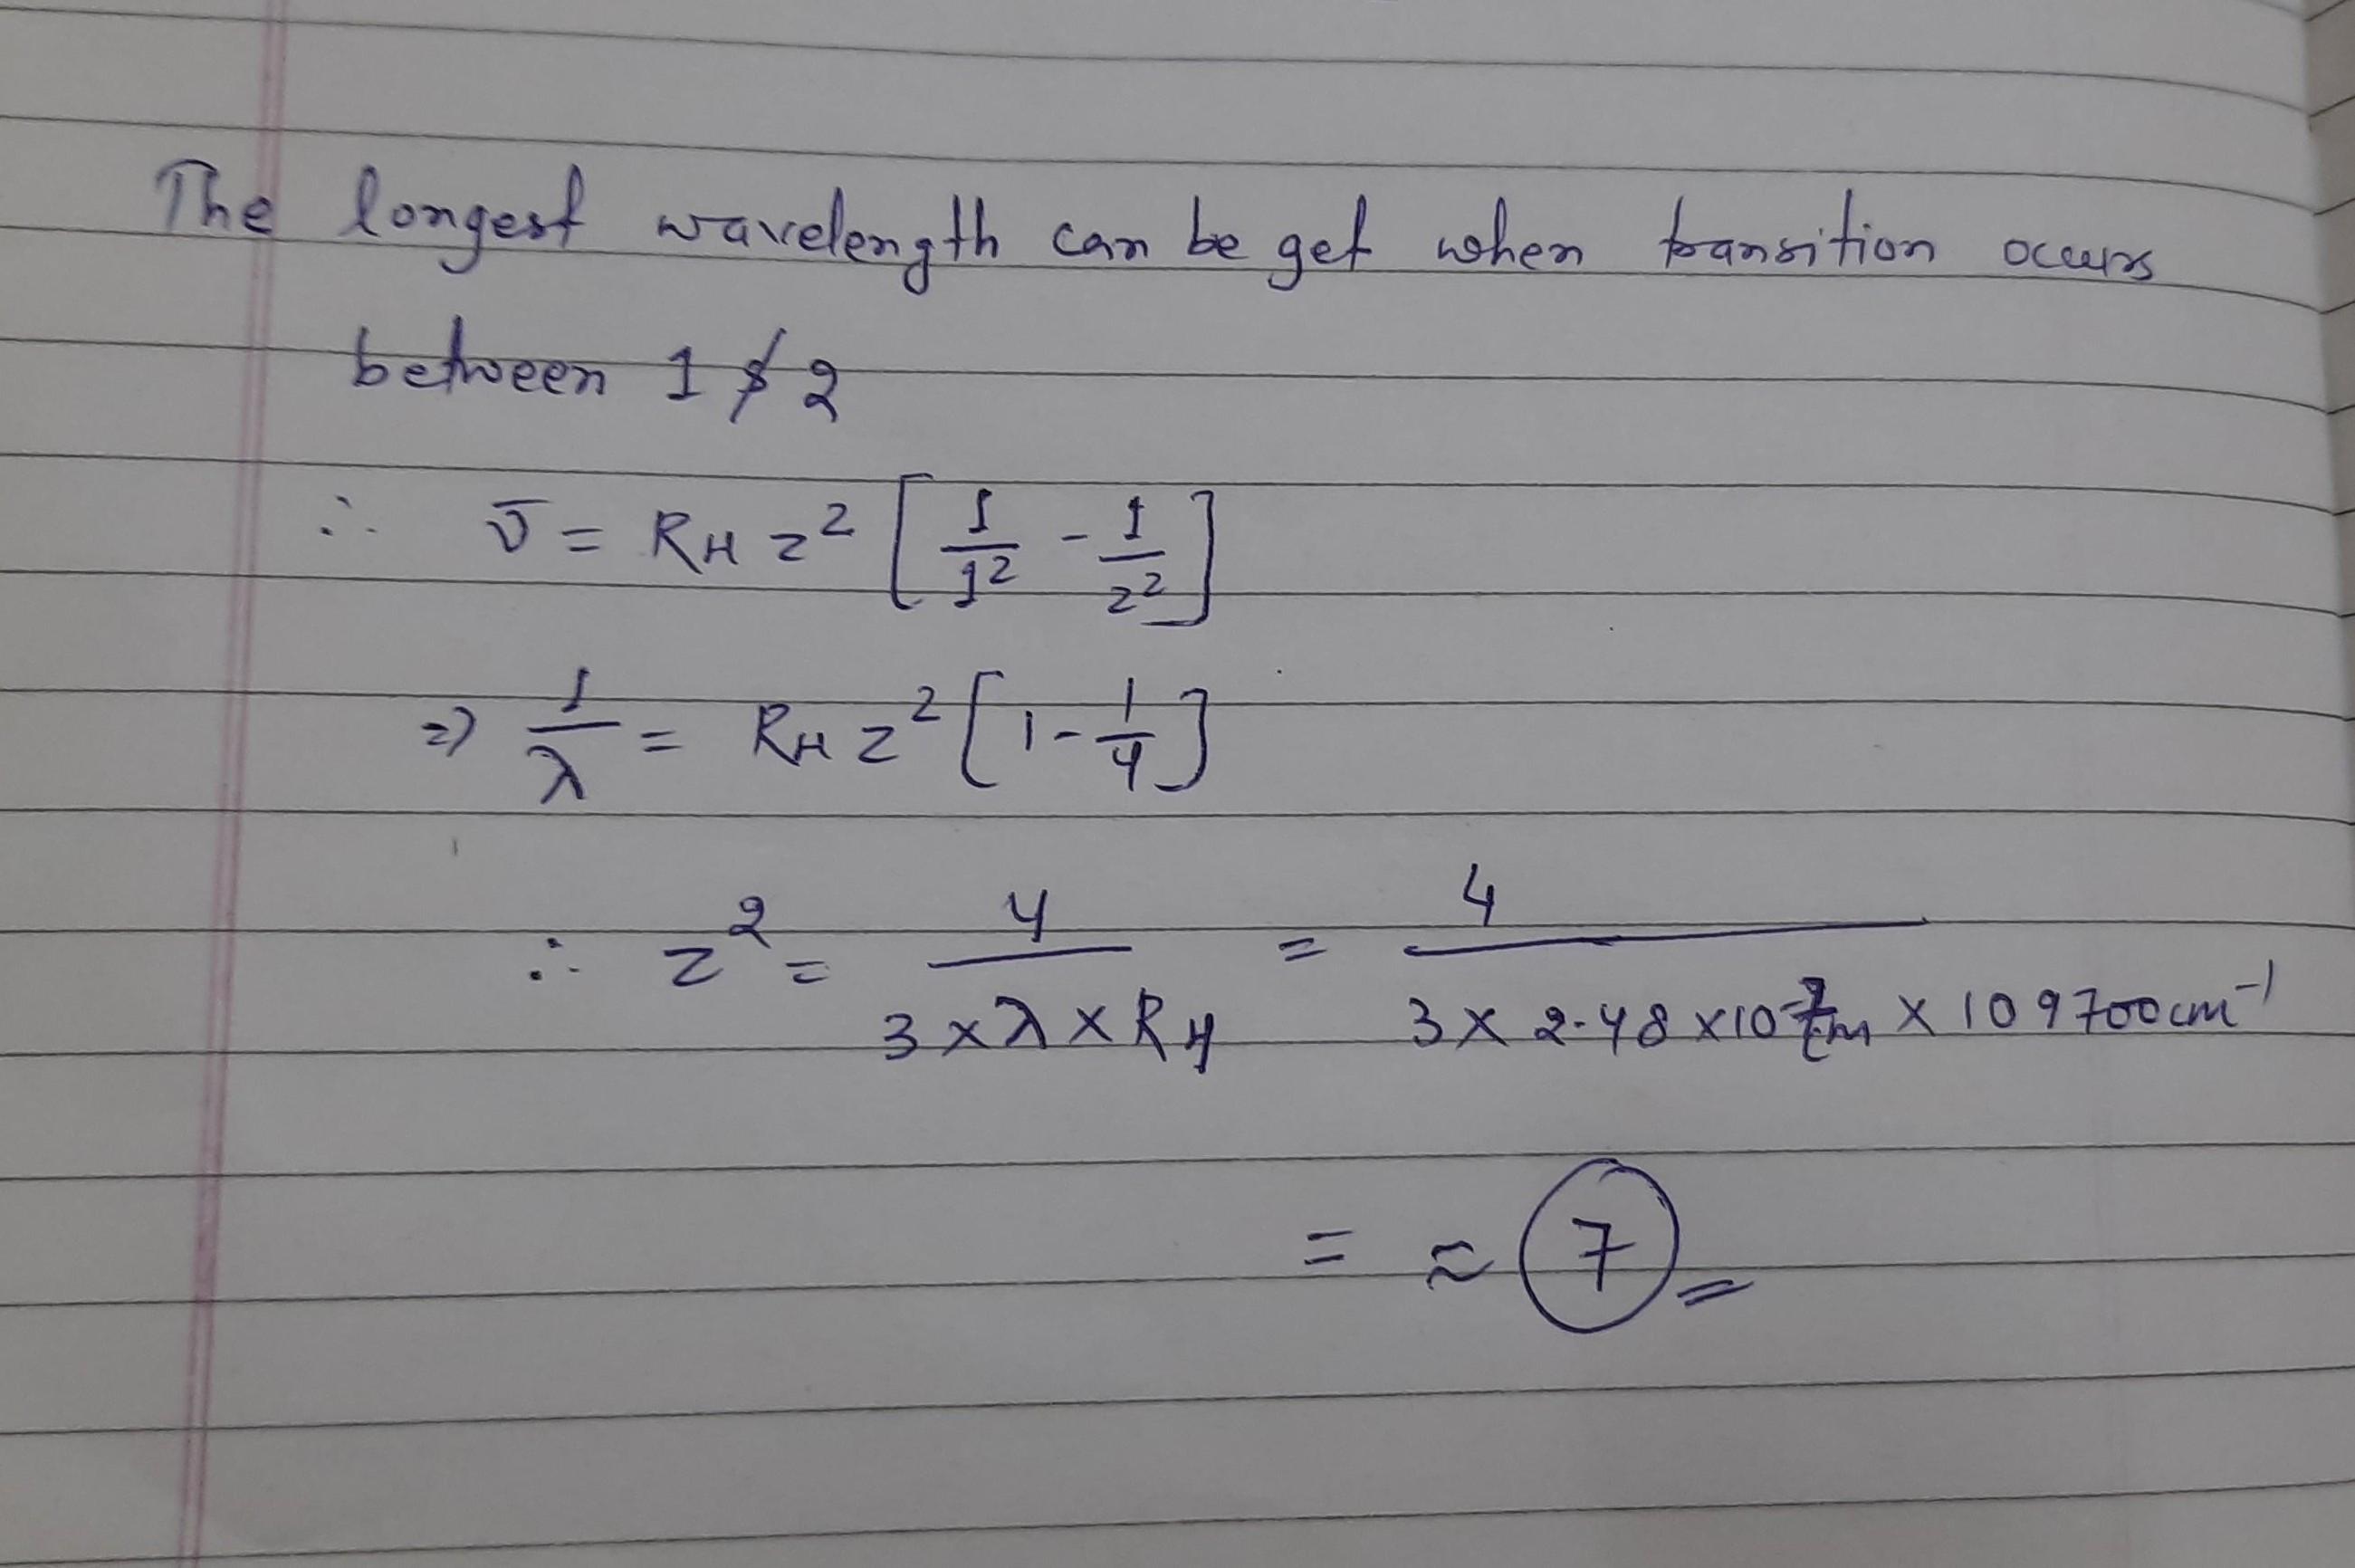 The longest wavelength can be get when transition occurs
between 1 & 2
∴ ν̄ = R_H z² [1/1² - 1/2²]
⇒ 1/λ = R_H z² [1 - 1/4]
∴ z² = 4/(3 × λ × R_H) = 4/(3 × 2.48 × 10⁻⁷ cm × 109700 cm⁻¹)
= ≈ 7